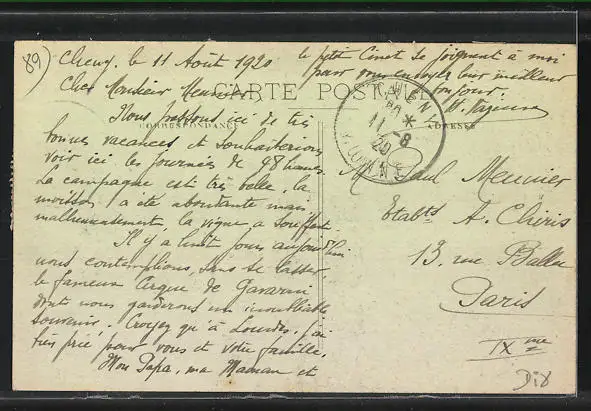 89)
Cheny, le 11 Août 1920
Cher Monsieur Meunier
CARTE POSTALE
CORRESPONDANCE
ADRESSE
Nous passons ici de très
bonnes vacances et souhaiterions
voir ici les journées de 48 heures.
La campagne est très belle, la
moisson a été abondante mais
malheureusement, la vigne a souffert.
Il y a huit jours aujourd'hui
nous contemplions, sans se lasser,
le fameux Cirque de Gavarni
dont nous garderons un inoubliable
souvenir. Croyez qu'à Lourdes, j'ai
bien prié pour vous et votre famille.
Mon Papa, ma Maman et
le petit se joignent à moi
pour vous envoyer leur meilleur
bonjour.
CHENY
11 -8
20
YONNE
M Paul Meunier
Etabts A. Chéris
13, rue Ballu
Paris
IXme
Di8